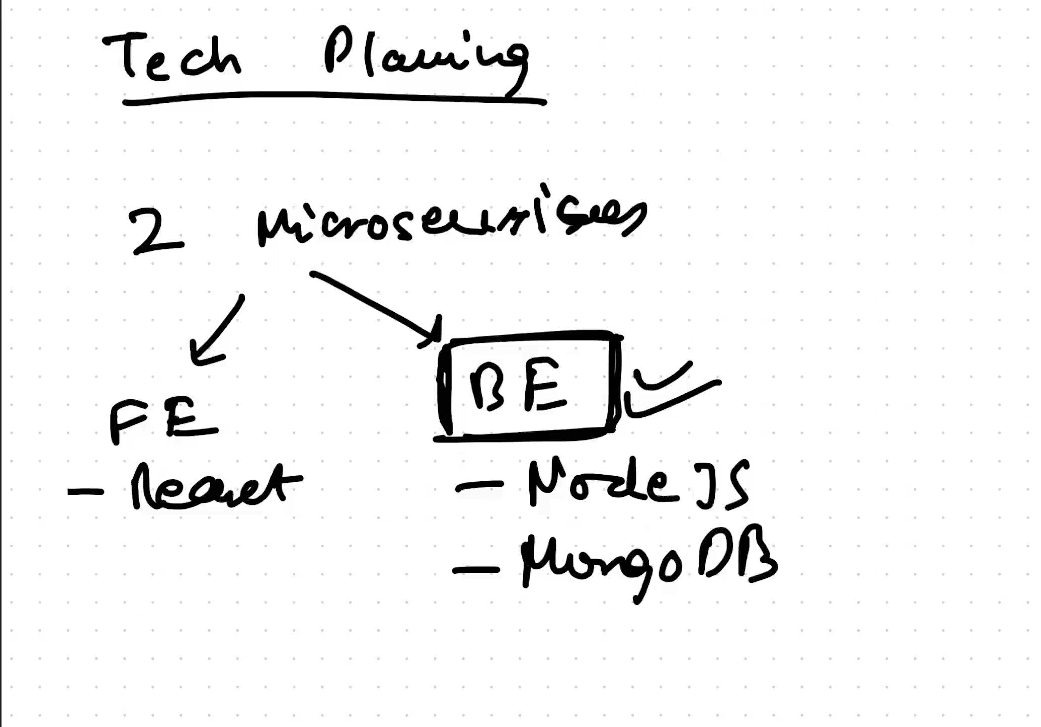 Tech Planning
2 Microservices
FE
- React
BE
- Node JS
- MongoDB